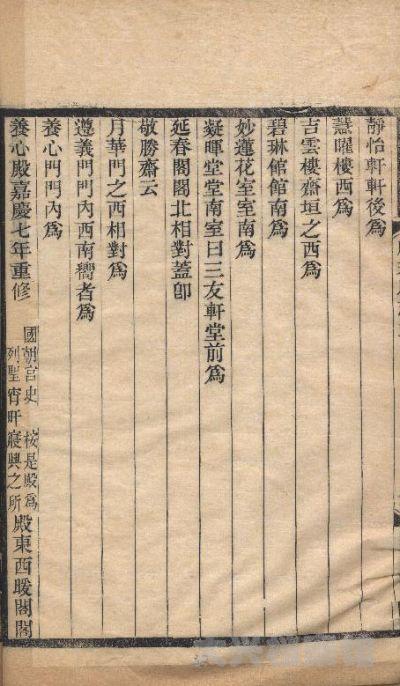 靜怡軒軒後爲
慧曜樓西爲
吉雲樓齋垣之西爲
碧琳館館南爲
妙蓮花室室南爲
凝暉堂堂南室曰三友軒堂前爲
延春閣閣北相對蓋卽
敬勝齋云
月華門之西相對爲
遵義門門內西南嚮者爲
養心門門內爲
養心殿嘉慶七年重修 國朝宮史 按是殿爲 列聖宵旰寢興之所 殿東西暖閣閣